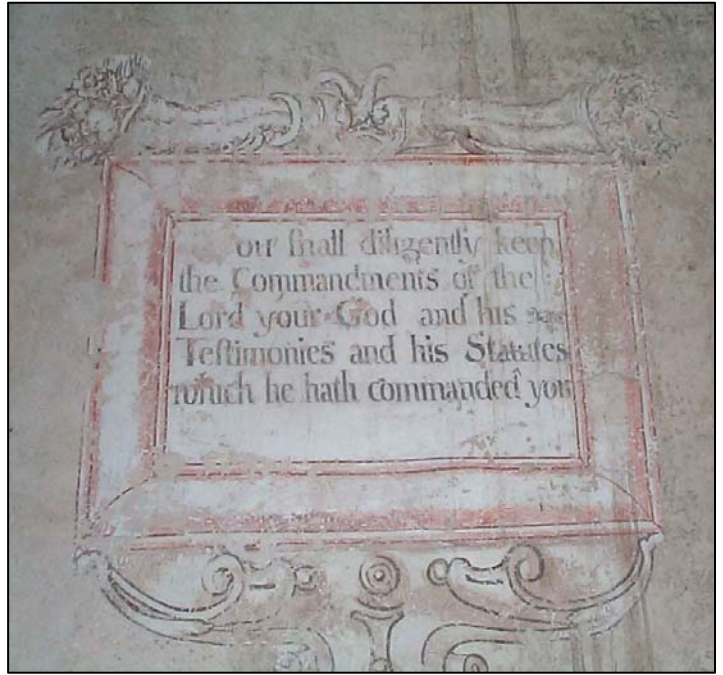 ou ſhall diligently keep
the Commandments of the
Lord your God and his
Teſtimonies and his Statutes
which he hath commanded you